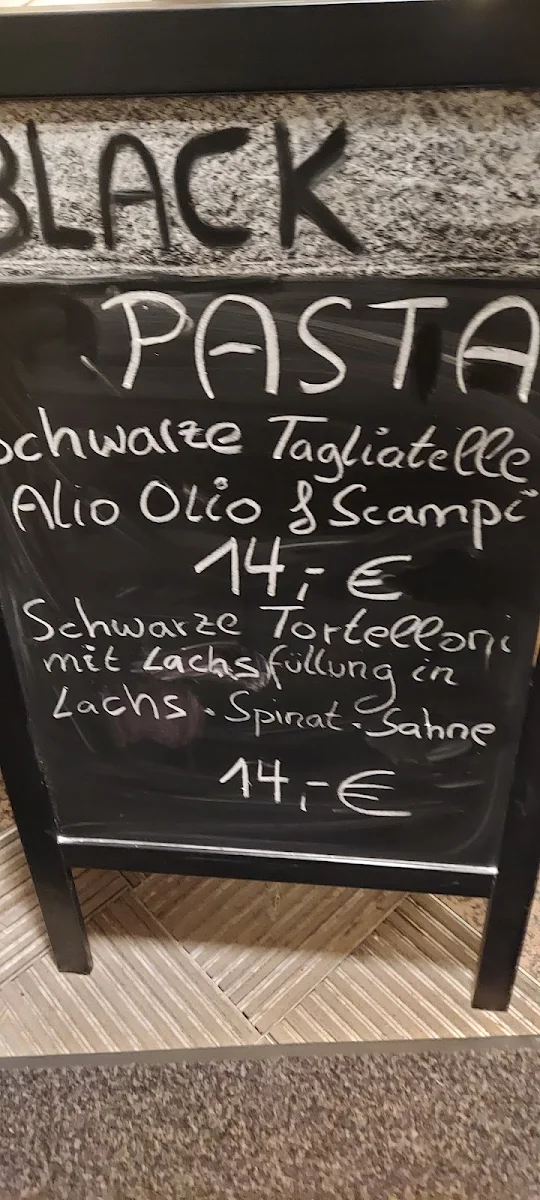 BLACK
PASTA
Schwarze Tagliatelle
Alio Olio & Scampi
14,- €
Schwarze Tortelloni
mit Lachsfüllung in
Lachs-Spinat-Sahne
14,- €